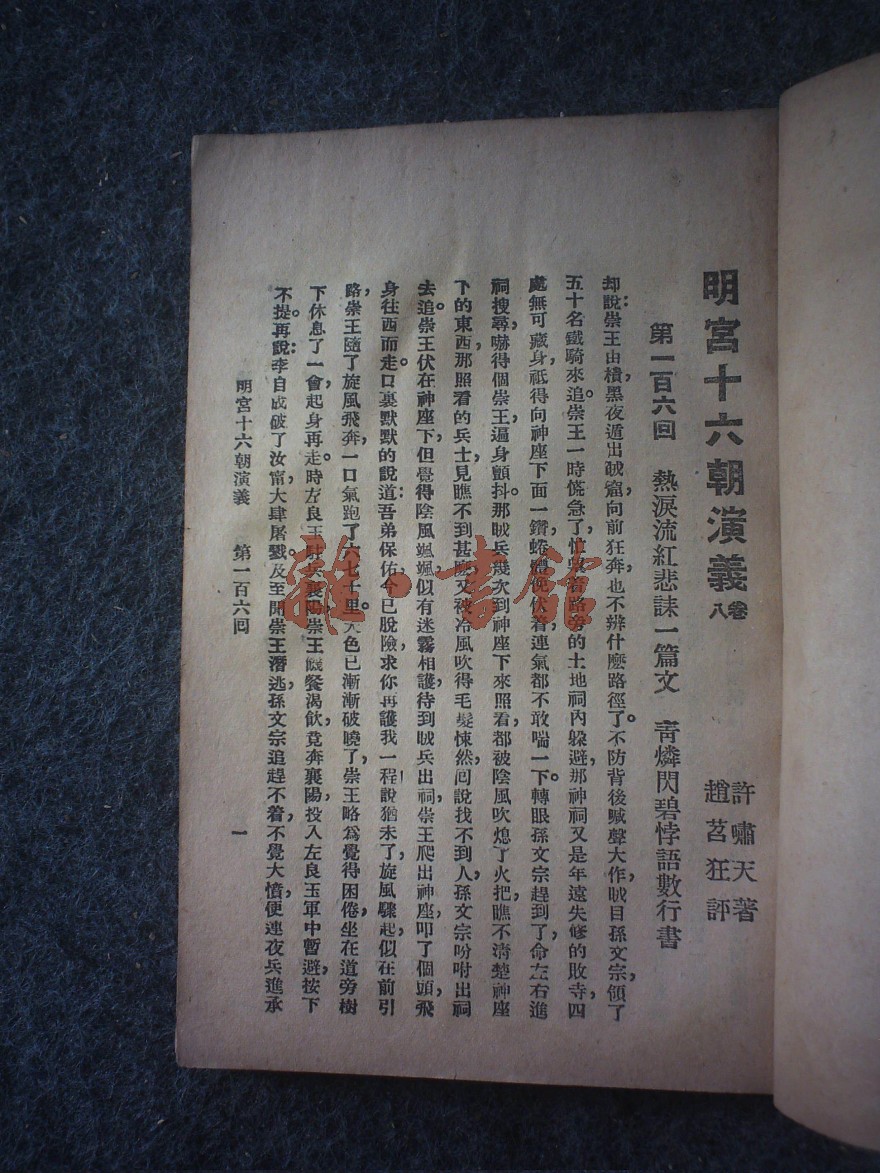 明宮十六朝演義 卷八
許嘯天著
趙苕狂評
第一百六回 熱淚流紅悲誄一篇文 青燐閃碧悖語數行書
却說:崇王由樻,黑夜遁出賊窟,向前狂奔,也不辨什麼路徑了。不防背後喊聲大作,賊目孫文宗,領了
五十名鐵騎來追。崇王一時慌急了,忙望着路旁的土地祠內躲避,那神祠又是年遠失修的敗寺,四
處無可藏身,祇得向神座下面一鑽,蜷體俛伏着,連氣都不敢喘一下。轉眼孫文宗趕到了,命左右進
祠搜尋,嚇得個崇王遍身顫抖。那賊兵幾次到神座下來照看,都被陰風吹熄了火把,瞧不清楚神座
下的東西,那照看的兵士,見瞧不到甚麼,又被冷風吹得毛髮悚然,回說找不到人,孫文宗吩咐出祠
去追。崇王伏在神座下,但覺得陰風颯颯,似有迷霧相護,待到賊兵出祠,崇王爬出神座,叩了個頭,飛
身往西而走。口裏默默的說道:吾弟保佑,今已脫險,求你再護我一程!說猶未了,旋風驟起,似在前引
路,崇王隨了旋風飛奔,一口氣跑了六七十里。天色已漸漸破曉了,崇王略爲覺得困倦,坐在道旁樹
下休息了一會,起身再走。時左良玉駐兵襄陽,崇王饑餐渴飲,竟奔襄陽,投入左良玉軍中暫避,按下
不提。再說:李自成破了汝甯,大肆屠戮。及至聞崇王潛逃,孫文宗追趕不着,不覺大憤,便連夜兵進承
明宮十六朝演義 第一百六回 一
雜·書館